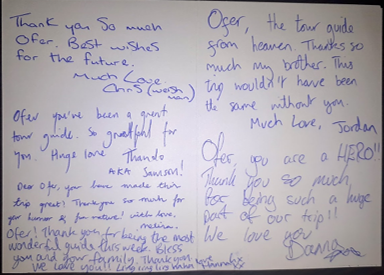 Thank you so much
Ofer. Best wishes
for the future.
Much Love.
Chris (welsh
man)
Ofer you've been a great
tour guide. So grateful for
you. Huge love Thando
AKA Samson!
Dear Ofer, you have made this
trip great! Thank you so much for
your humor & fun nature! with love,
Ofer! Thank you for being the most
wonderful guide this week. Bless
you and your family. Thank you.
We love you!!
Ofer, the tour guide
from heaven. Thanks so
much my brother. This
trip wouldn't have been
the same without you.
Much Love, Jordan
Ofer, you are a HERO!!
Thank you so much
for being such a huge
part of our trip!!
We love you